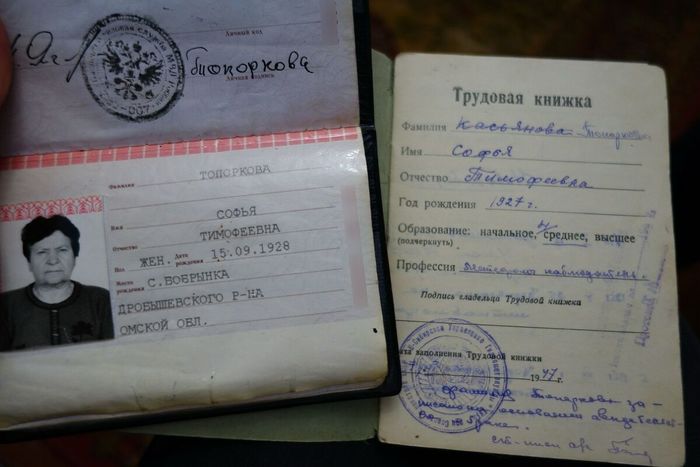 Личный код
Топоркова
Личная подпись
ТОПОРКОВА
Фамилия
СОФЬЯ
Имя
ТИМОФЕЕВНА
Отчество
Пол ЖЕН. Дата рождения 15.09.1928
Место рождения С. БОБРЫНКА
ДРОБЫШЕВСКОГО Р-НА
ОМСКОЙ ОБЛ.
Трудовая книжка
Фамилия Касьянова Топоркова
Имя Софья
Отчество Тимофеевна
Год рождения 1927 г.
Образование: начальное, среднее, высшее
(подчеркнуть)
Профессия
Подпись владельца Трудовой книжки
заполнения Трудовой книжки
1947 г.
Топоркова за-
писана на основании свидетельст-
ва о браке.